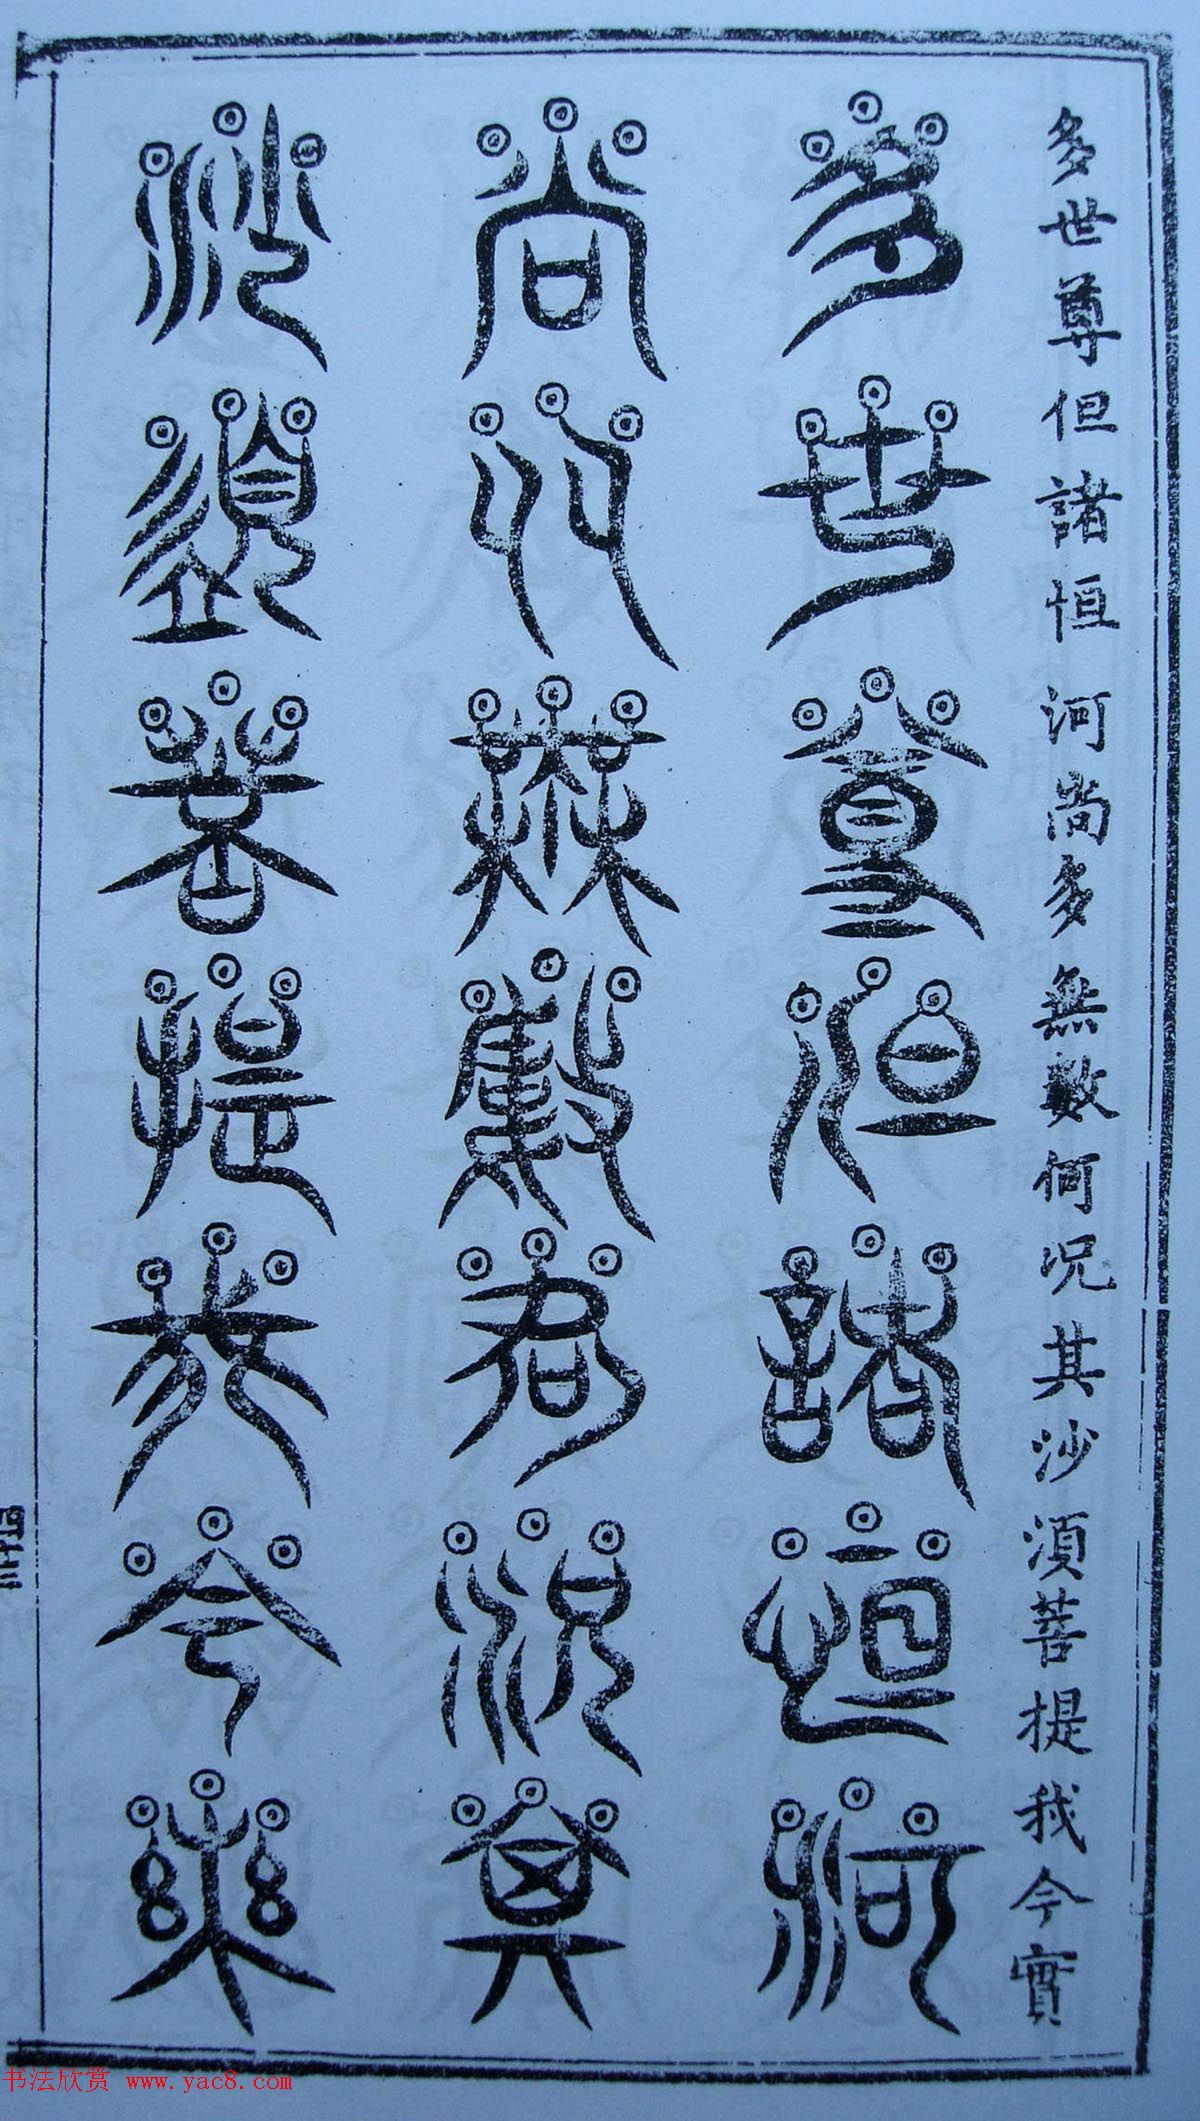 多世尊但諸恒河尚多無數何况其沙湏菩提我今實
多世尊但諸恒河
尚多無數何況其
沙須菩提我今實
书法欣赏 www.yac8.com